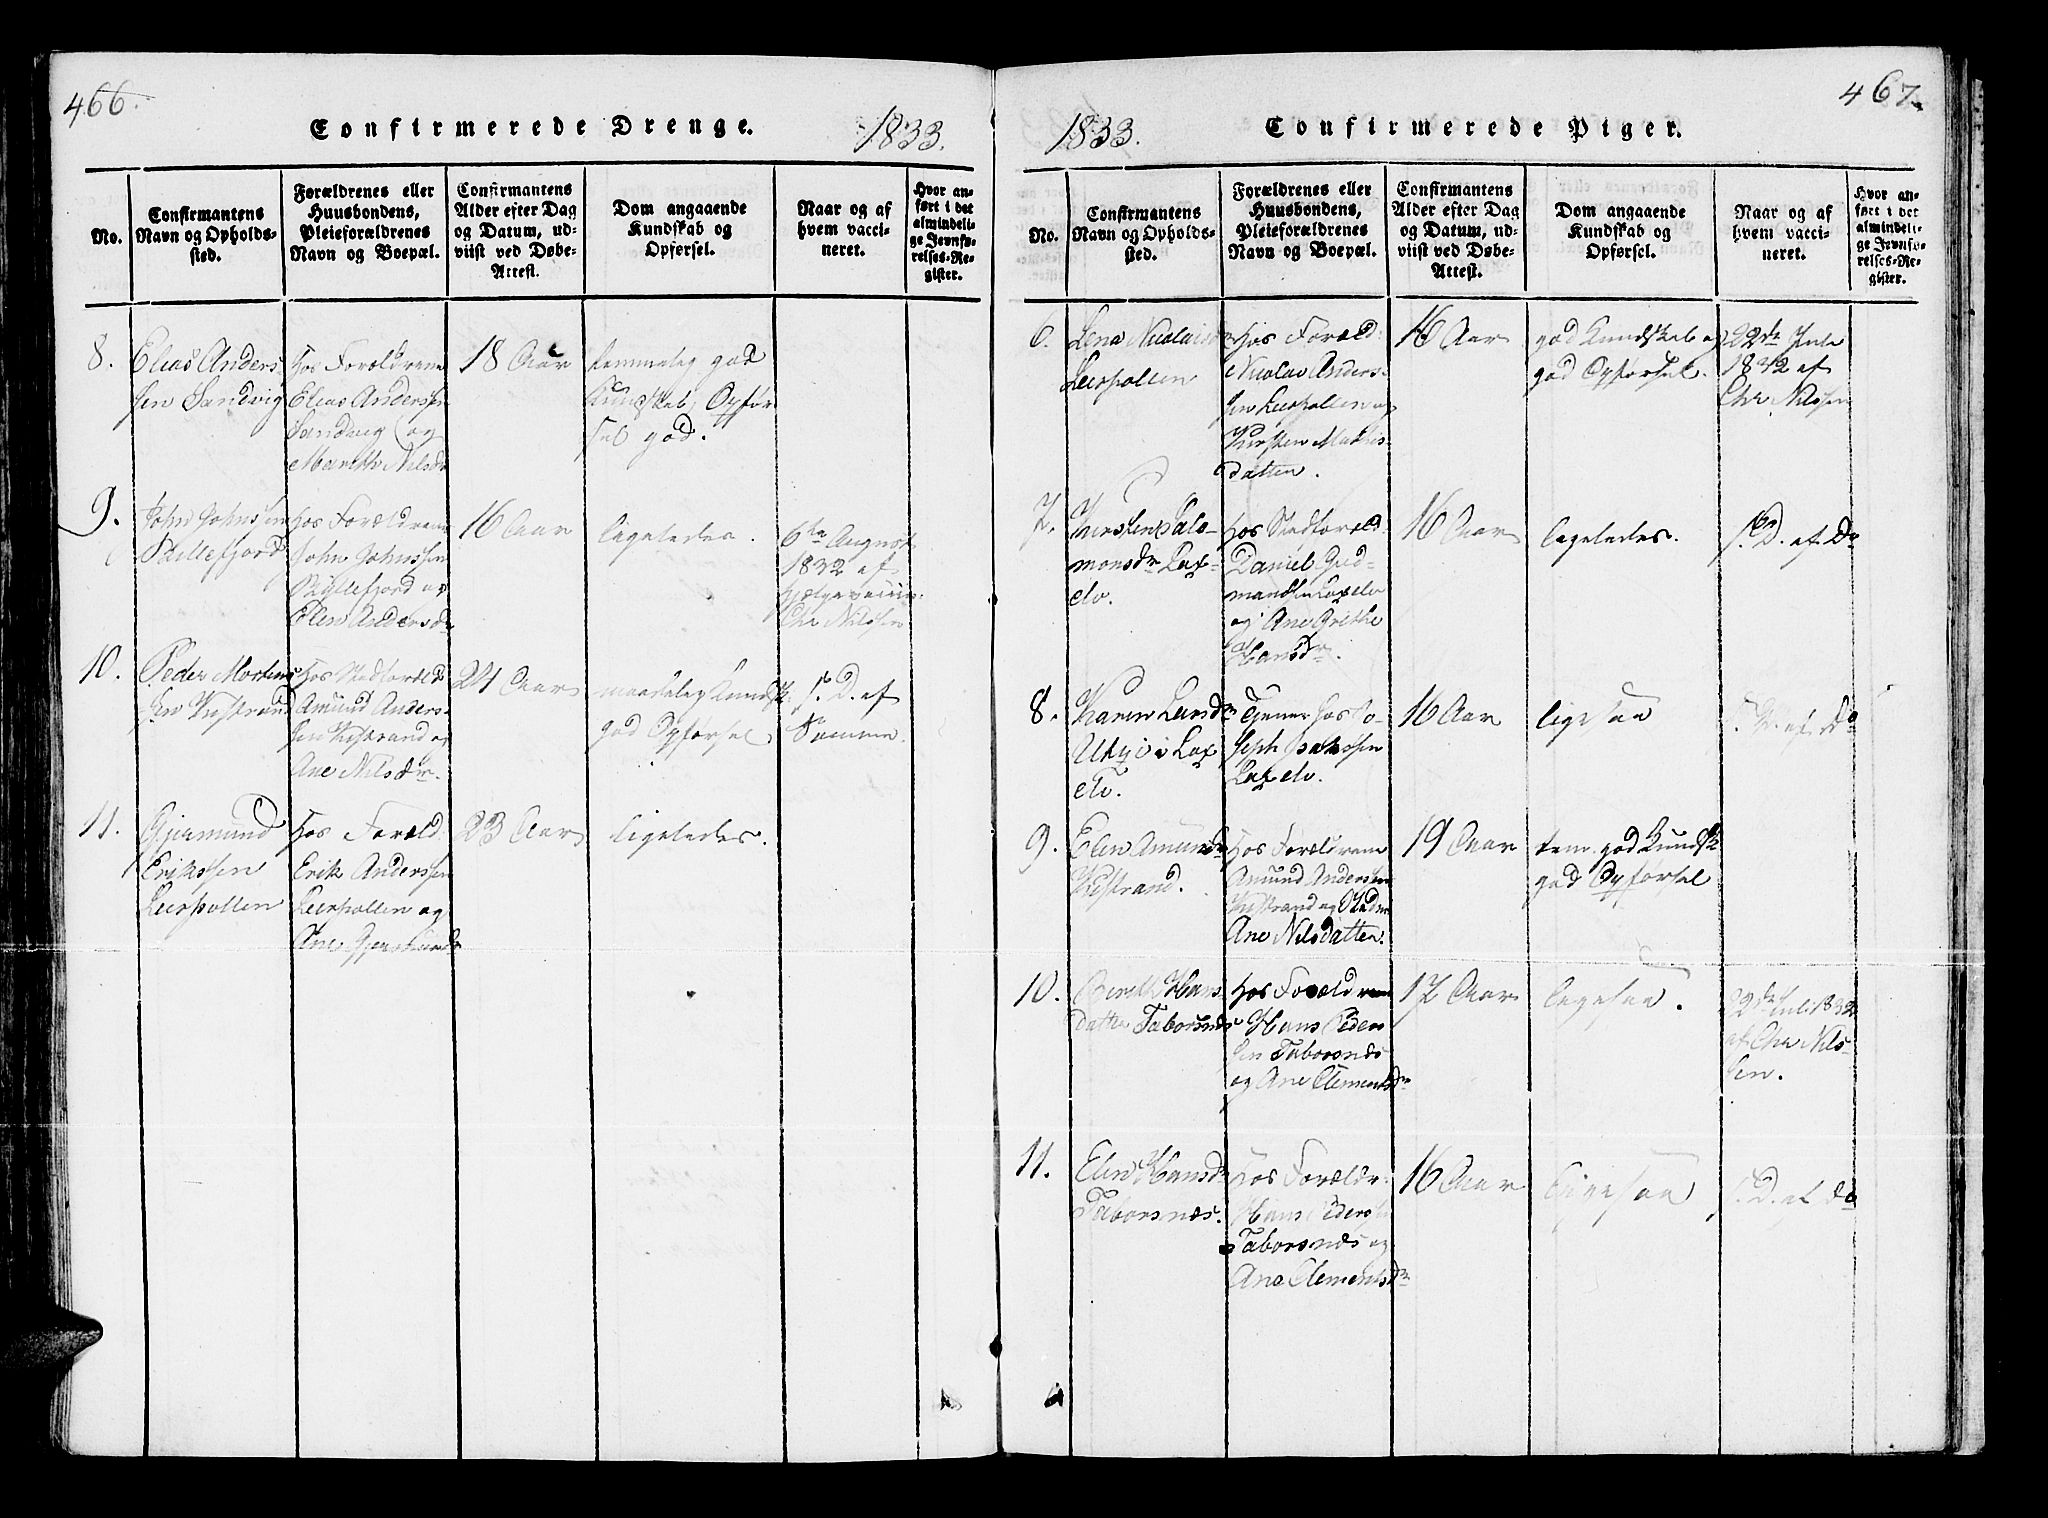 466.
Confirmerede Drenge.
1833.
No.
Confirmantens
Navn og Opholds-
sted.
Forældrenes eller
Huusbondens,
Pleieforældrenes
Navn og Boepæl.
Confirmantens
Alder efter Dag
og Datum, ud-
viist ved Døbe-
Attest.
Dom angaaende
Kundskab og
Opførsel.
Naar og af
hvem vacci-
neret.
Hvor an-
ført i det
almindeli-
ge Jevnfø-
relses-Re-
gister.
8.
Elias Anders
sen Sandvig
hos Forældrene
Elias Anderssen
Sandvig og
Marith Nilsdr
18 Aar
temmelig god
Kundskab, Opfør
sel god.
9.
John Johnssen
Kollefjord
hos Forældrene
John Johnssen
Kollefjord og
Elen Andersdr
16 Aar
ligeledes.
6te August
1832 af
Hjelpevaccin.
Chr Nilssen
10.
Peder Mortens
sen Kistrand
hos Stedforæld
Amund Anders-
sen Kistrand og
Ane Nilsdr.
24 Aar
maadelig Kundsk.
god Opførsel
s. D. af
Samme.
11.
Gjermund
Erikssen
Leirpollen
hos Foræld:
Erik Anderssen
Leirpollen og
Ane Gjermundsdr
23 Aar
ligeledes.
467.
1833.
Confirmerede Piger.
No.
Confirmantens
Navn og Opholds-
sted.
Forældrenes eller
Huusbondens,
Pleieforældrenes
Navn og Boepæl.
Confirmantens
Alder efter Dag
og Datum, ud-
viist ved Døbe-
Attest.
Dom angaaende
Kundskab og
Opførsel.
Naar og af
hvem vacci-
neret.
Hvor an-
ført i det
almindeli-
ge Jevnfø-
relses-Re-
gister.
6.
Lena Nicolaisdr
Leirpollen
hos Foræld:
Nicolai Anders-
sen Leirpollen og
Kirsten Mathis-
datter.
16 Aar
god Kundskab og
god Opførsel.
22de Juli
1832 af
Chr Nilssen
7.
Kirsten Salo-
monsdr Lax-
elv.
hos Stedforæld:
Daniel Gud-
mandsen Laxelv
og Ane Grethe
Hansdr.
16 Aar
ligeledes.
s. D. af Do
8.
Karen Larsdr
i Lax
elv.
Tjener hos Jo-
seph
Laxelv.
16 Aar
ligesaa
s. D. af Do
9.
Elen Amundsdr
Kistrand.
hos Forældrene
Amund Anderssen
Kistrand og
Ane Nilsdatter.
19 Aar
tem. god Kundsk
god Opførsel
10.
Berith Hans
datter Taborsnæs
hos Forældrene
Hans Peder
sen Taborsnæs
og Ane Clemensdr
17 Aar
ligesaa.
22de Juli 1832
af Chr Nils-
sen.
11.
Elen Hansdr
Taborsnæs.
hos Forældr:
Hans Pederssen
Taborsnæs og
Ane Clementsdr
16 Aar
ligesaa
s. D. af do